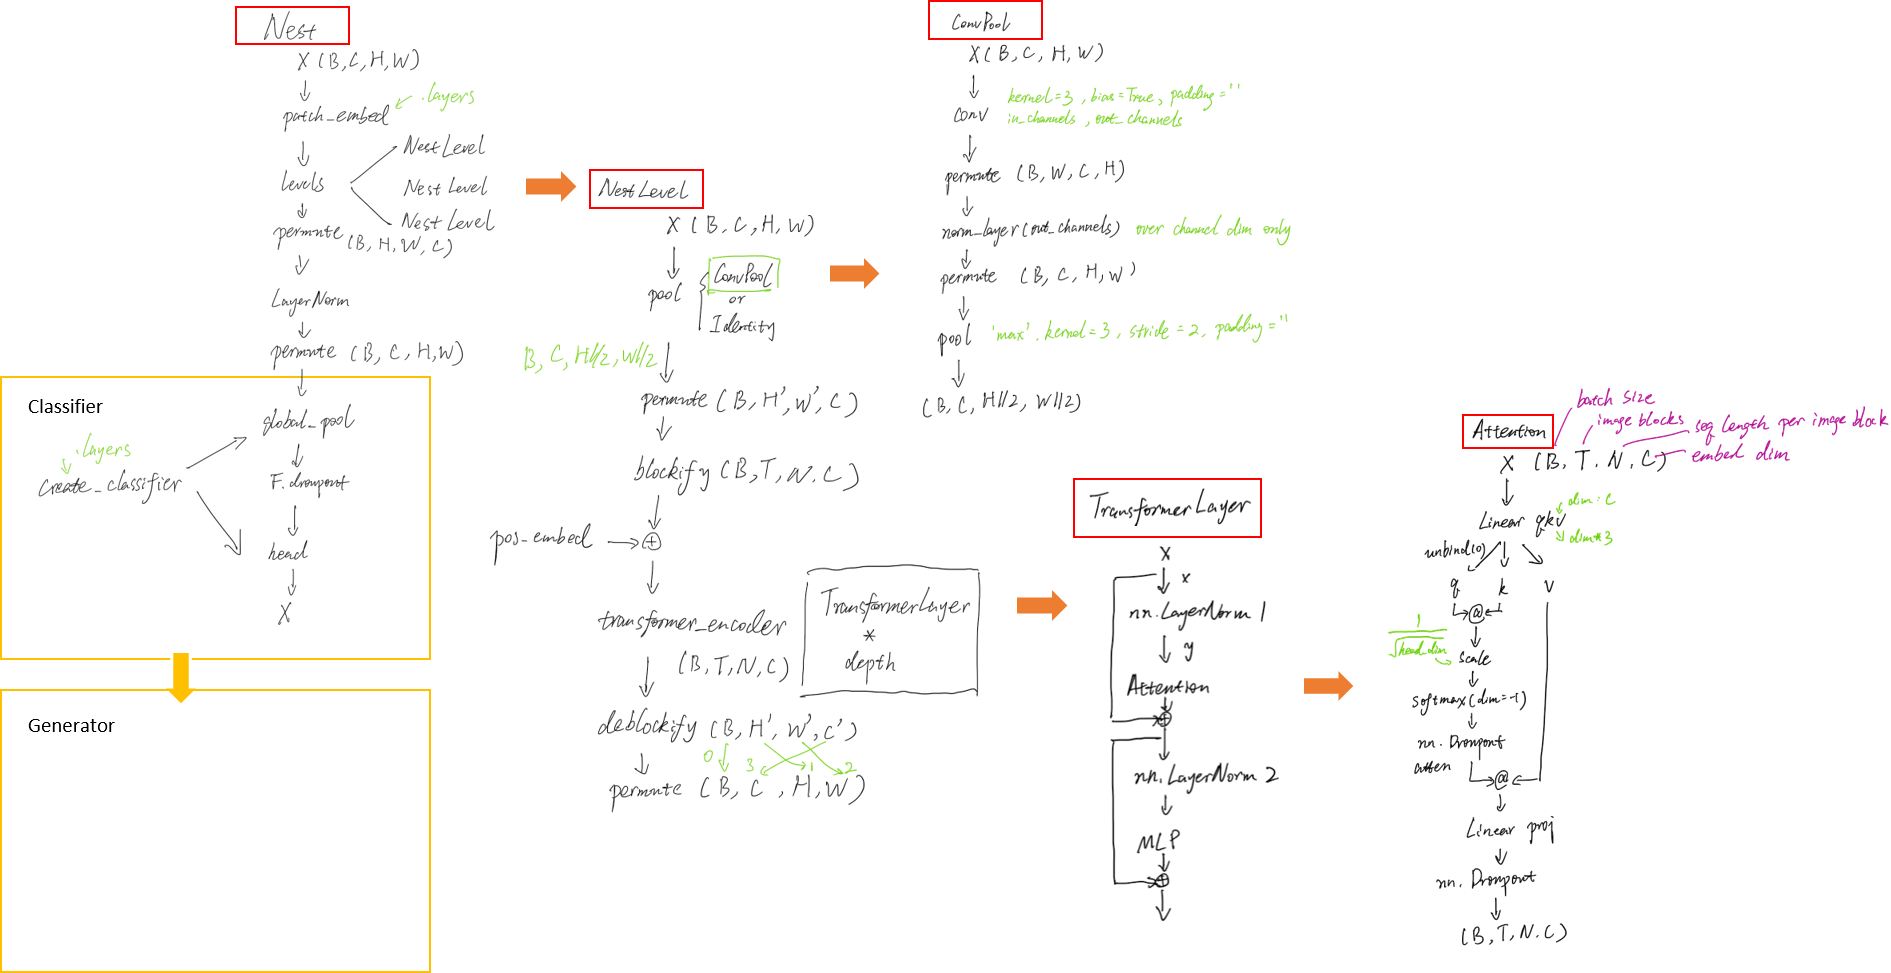 Nest
X (B,C,H,W)
.layers
patch_embed
NestLevel
levels
NestLevel
NestLevel
permute (B, H, W, C)
LayerNorm
permute (B, C, H, W)
Classifier
global_pool
.layers
create_classifier
F.dropout
head
X
Generator
NestLevel
X (B, C, H, W)
ConvPool
pool
or
Identity
B, C, H//2, W//2
permute (B, H', W', C)
blockify (B, T, N, C)
pos_embed
+
transformer_encoder
(B, T, N, C)
TransformerLayer
*
depth
deblockify (B, H', W', C')
0 3 1 2
permute (B, C, H, W)
ConvPool
X (B, C, H, W)
kernel=3, bias=True, padding=''
conv
in_channels, out_channels
permute (B, W, C, H)
norm_layer(out_channels) over channel dim only
permute (B, C, H, W)
pool 'max'. kernel=3, stride=2, padding=''
(B, C, H//2, W//2)
TransformerLayer
X
x
nn.LayerNorm 1
y
Attention
+
nn.LayerNorm 2
MLP
+
batch size
image blocks
Attention
seq length per image block
X (B, T, N, C)
embed dim
dim: C
Linear qkv
dim*3
unbind(0)
q k v
@
1
√head_dim
scale
softmax(dim=-1)
nn.Dropout
atten
@
Linear proj
nn.Dropout
(B, T, N, C)